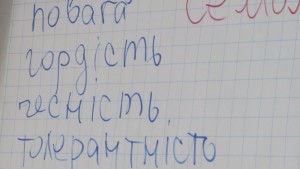 повага
гордість
чесність,
толерантність